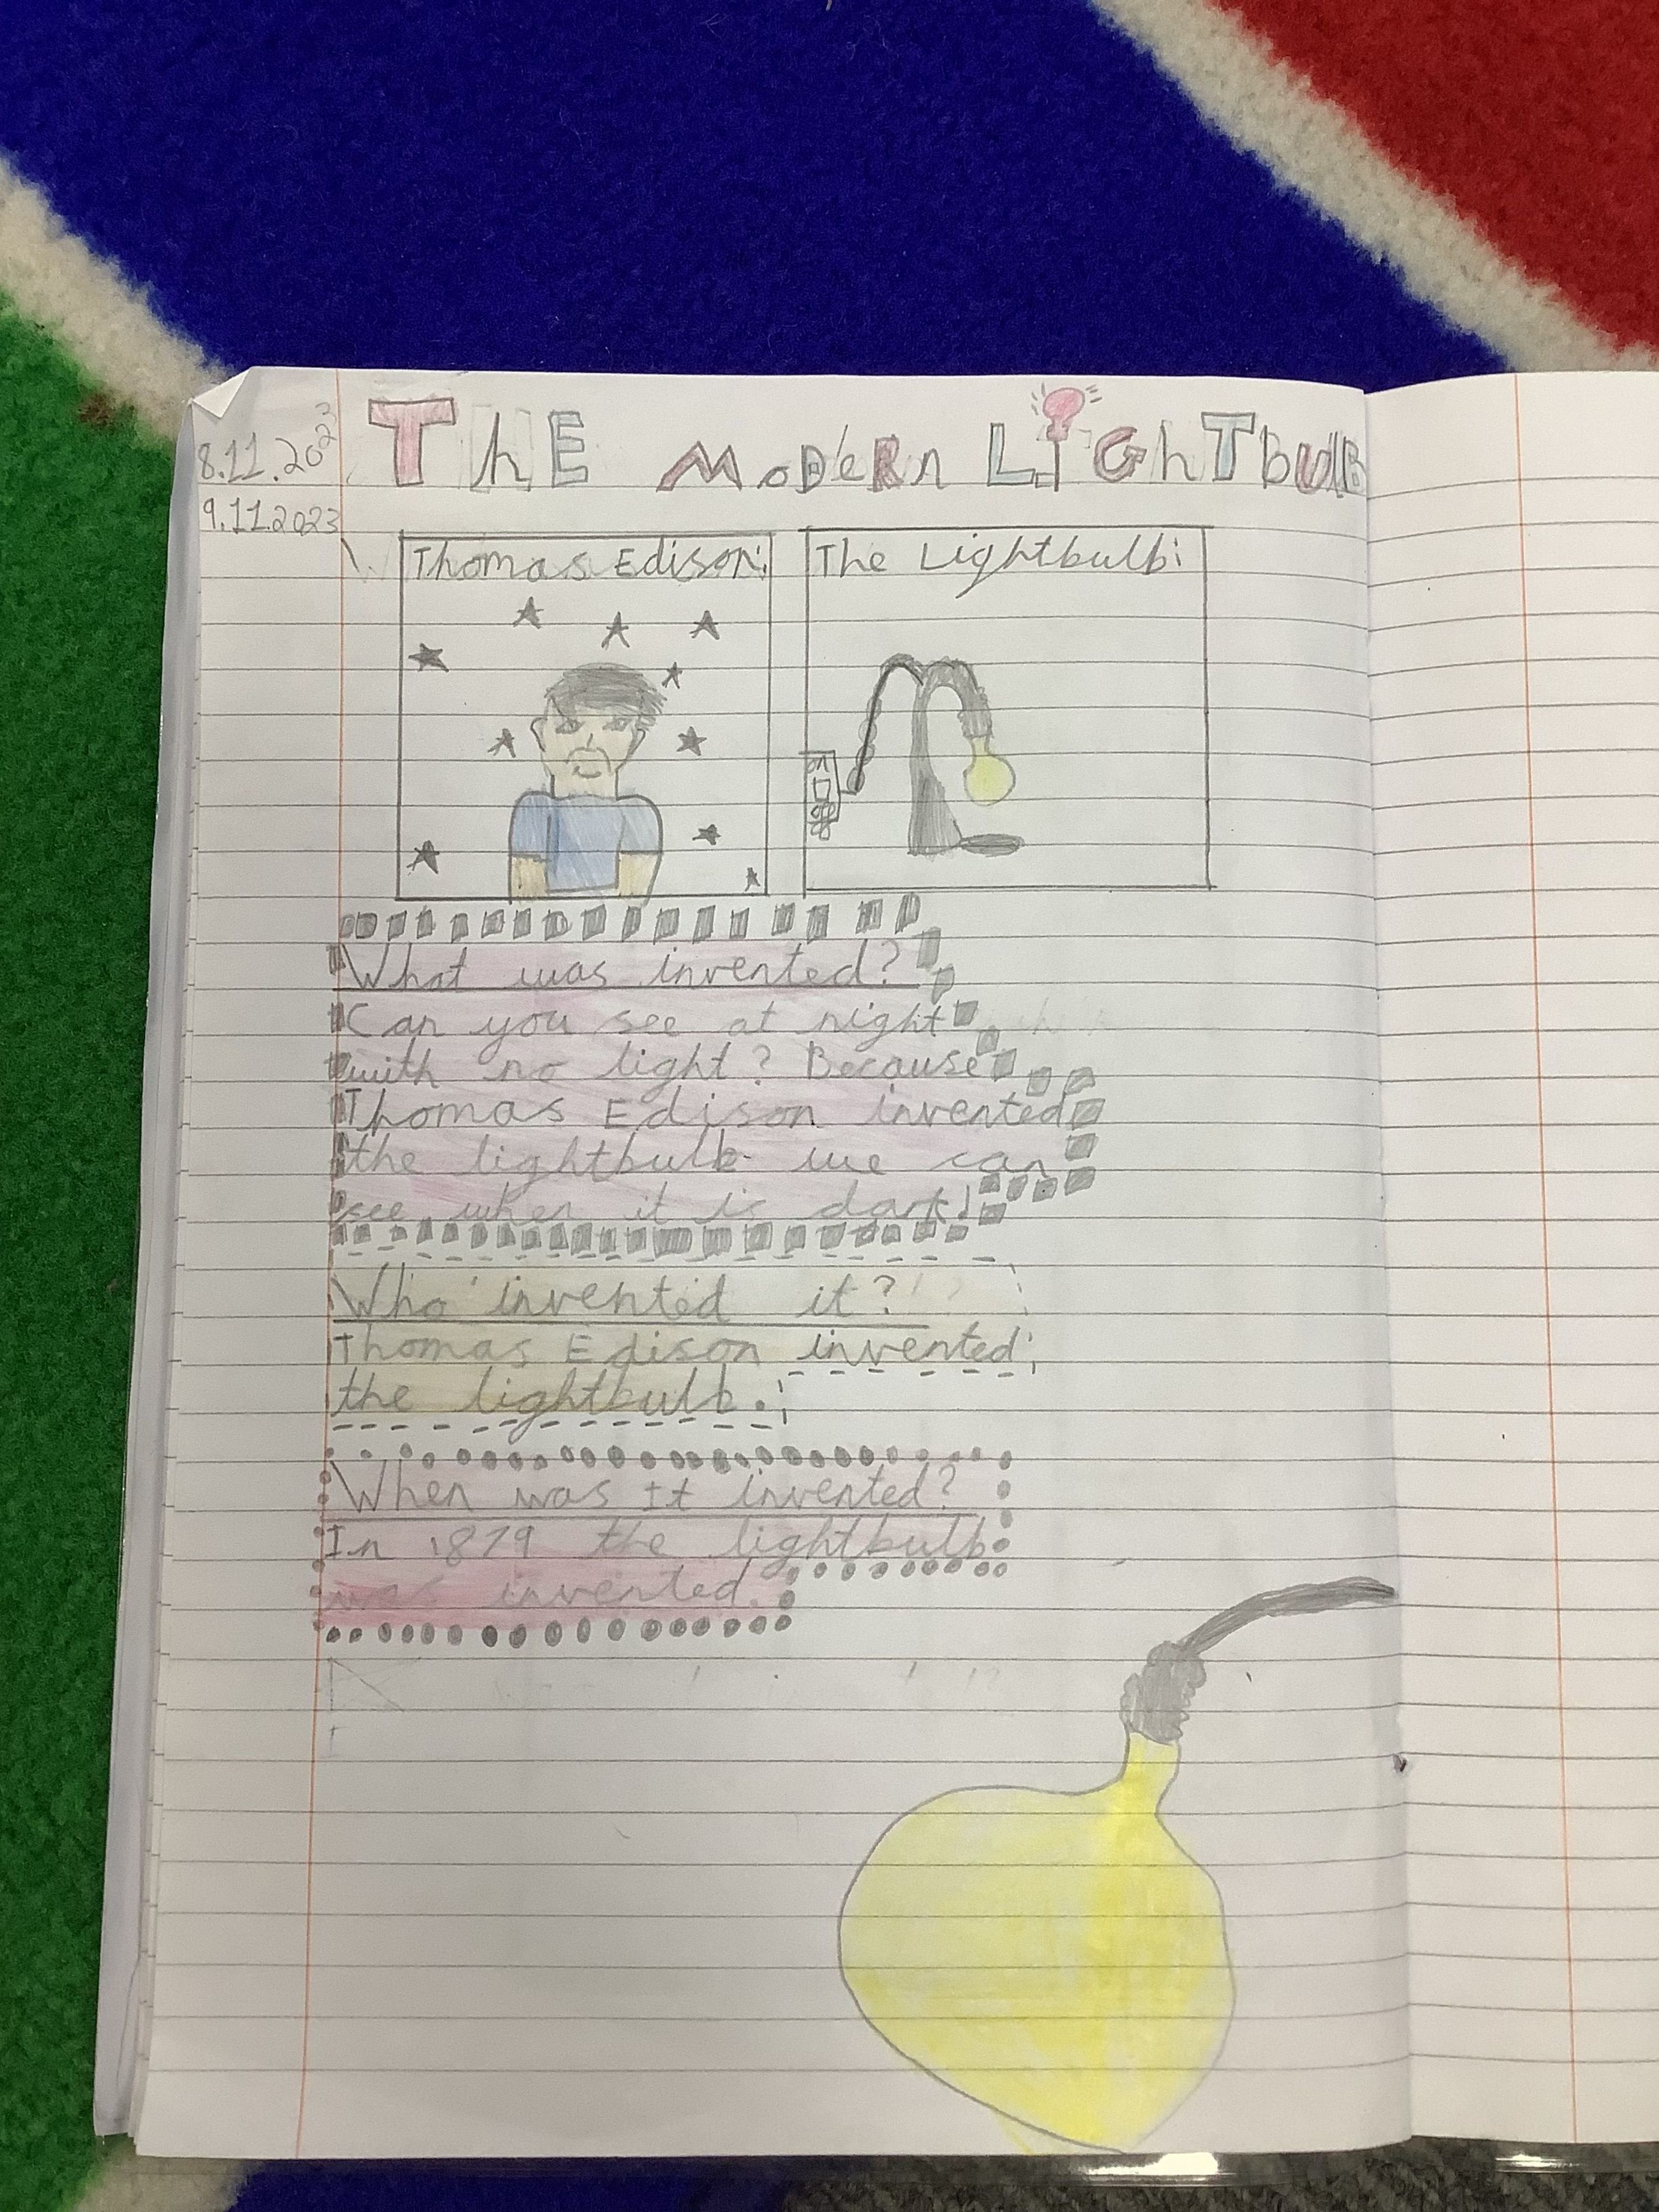 8.11.2023
THE MODERN LIGHTBULB
9.11.2023
Thomas Edison:
The Lightbulb:
on
off
What was invented?
Can you see at night
with no light? Because
Thomas Edison invented
the lightbulb we can
see when it is dark!
Who invented it?
Thomas Edison invented
the lightbulb.
When was It invented?
In 1879 the lightbulb
was invented.